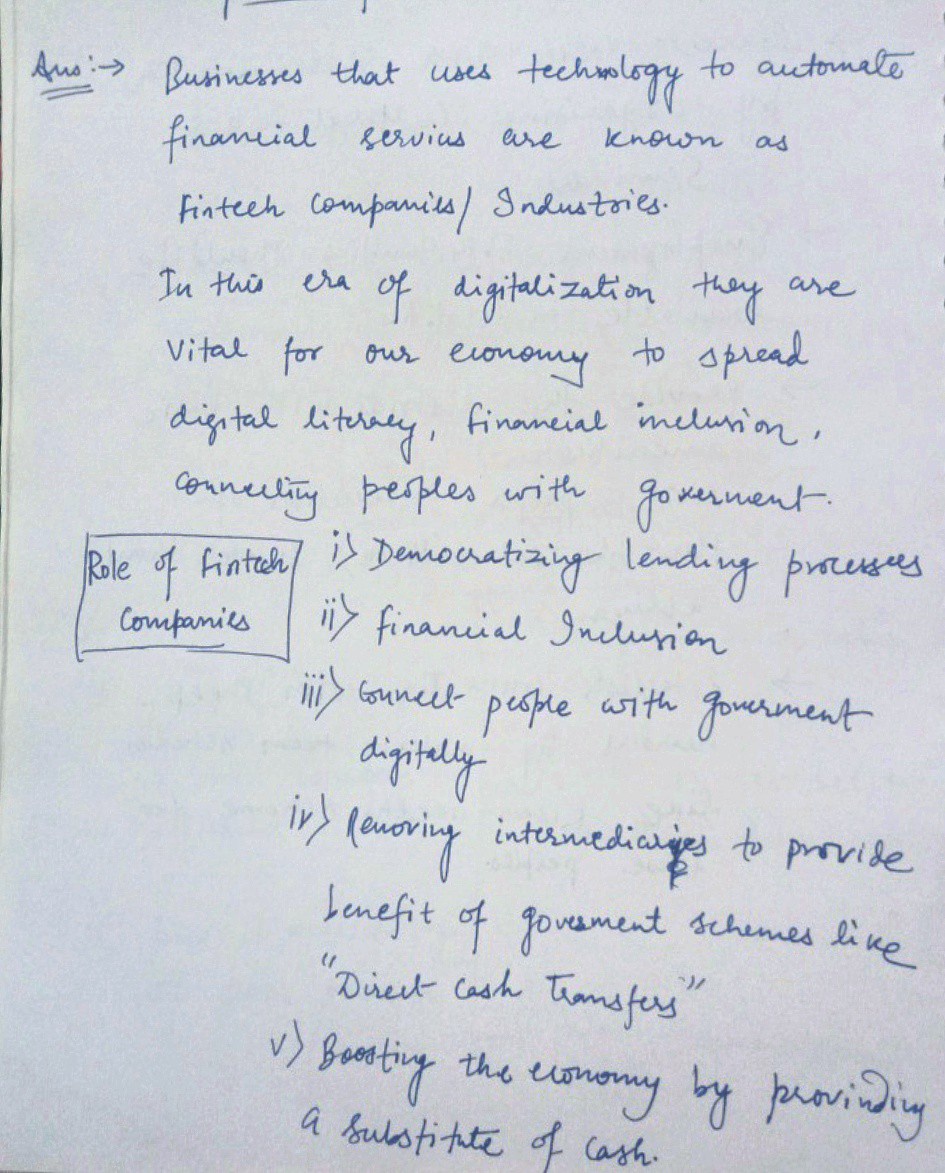 Ans:→ Businesses that uses technology to automate
financial services are known as
Fintech Companies/ Industries.
In this era of digitalization they are
vital for our economy to spread
digital literacy, financial inclusion,
connecting peoples with government.
Role of fintech
Companies
i) Democratizing lending processes
ii) financial Inclusion
iii) Connect people with government
digitally
iv) Removing intermediaries to provide
benefit of government schemes like
"Direct Cash Transfers"
v) Boosting the economy by provinding
a substitute of cash.